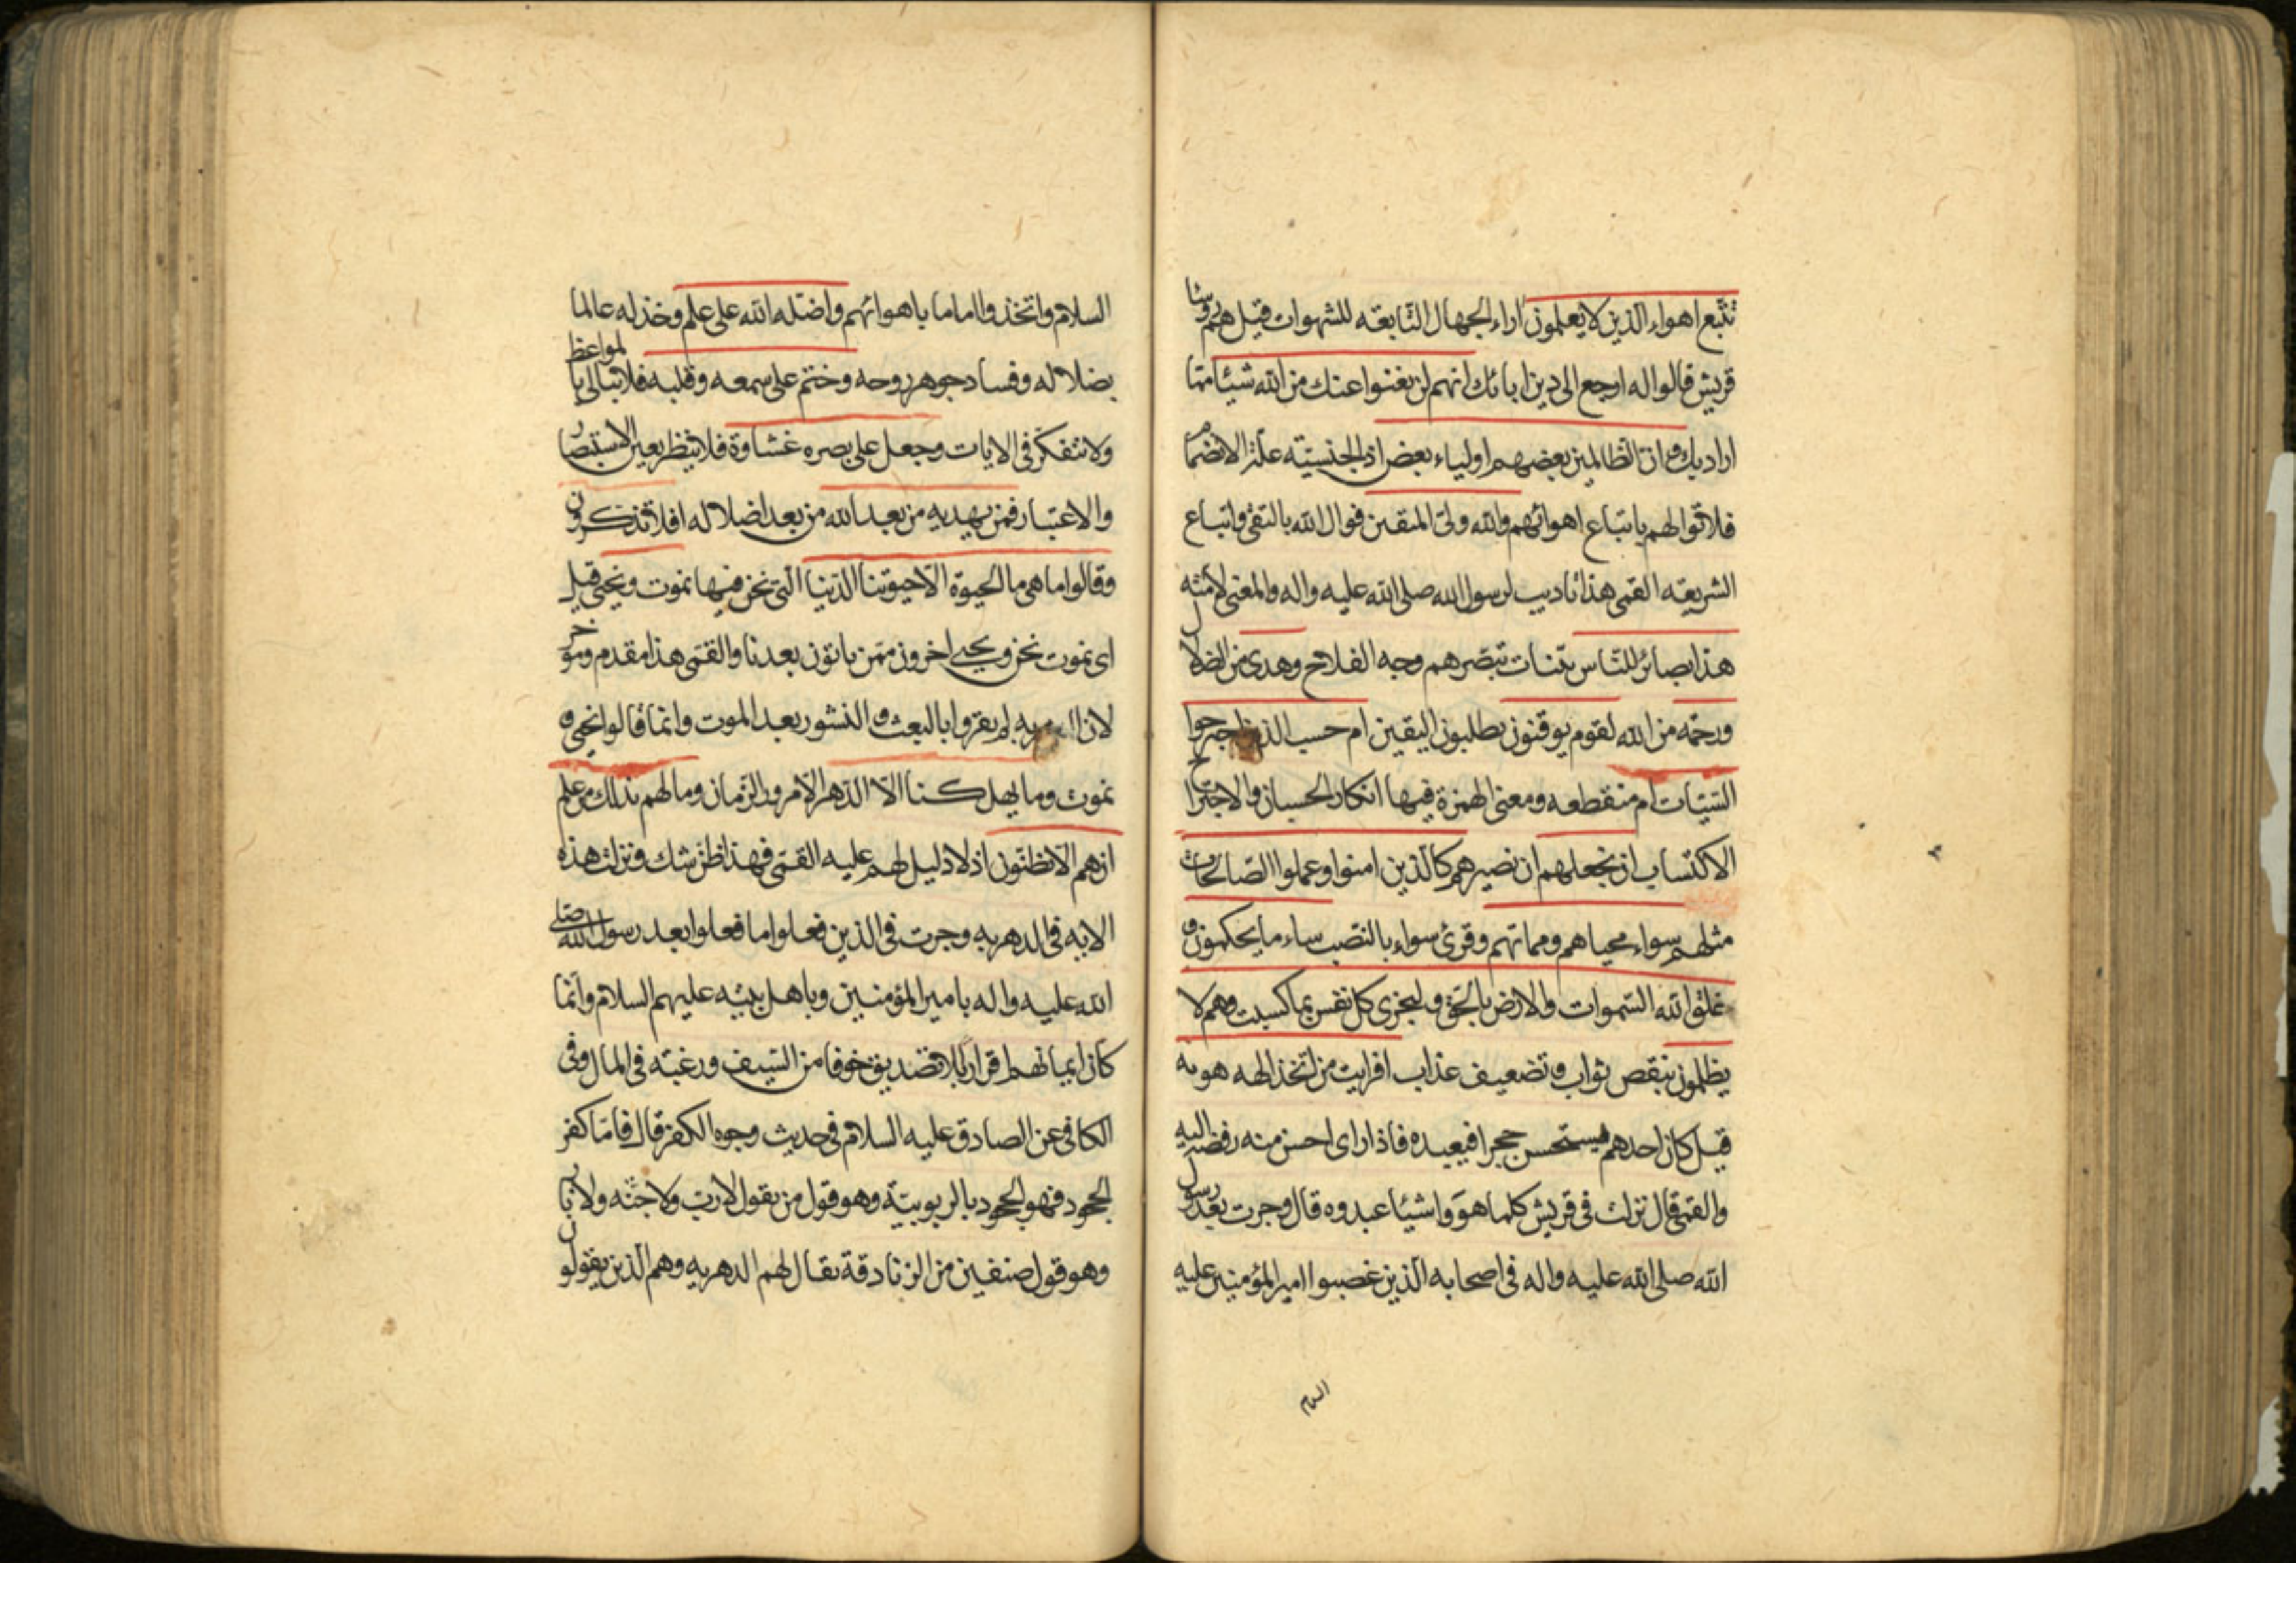 تتبع اهواء الذين لا يعلمون اراء الجهال التابعة للشهوات قيل هم رؤسا
قريش قالوا له ارجع الى دين ابائك انهم لن يغنوا عنك من الله شيئا مما
اراد بك وان الظالمين بعضهم اولياء بعض اذ الجنسيته علة الانضمام
فلا توالهم باتباع اهوائهم والله ولى المتقين فوال الله بالتقى واتباع
الشريعه القمى هذا تاديب لرسول الله صلى الله عليه واله والمعنى لامته
هذا بصائر للناس بينات تبصرهم وجه الفلاح وهدى من الضلال
ورحمه من الله لقوم يوقنون يطلبون اليقين ام حسب الذين اجترحوا
السيئات ام منقطعه ومعنى الهمزة فيها انكار الحسبان والاجتراح
الاكتساب ان نجعلهم ان نصيرهم كالذين امنوا وعملوا الصالحات
مثلهم سواء محياهم ومماتهم وقرئ سواء بالنصب ساء ما يحكمون و
خلق الله السموات والارض بالحق ولتجزى كل نفس بما كسبت وهم لا
يظلمون بنقص ثواب وتضعيف عذاب افرايت من اتخذ الهه هويه
قيل كان احدهم يستحسن حجرا فيعبده فاذا راى احسن منه رفضه اليه
والقمى قال نزلت فى قريش كلما هووا شيئا عبدوه قال وجرت بعد رسول
الله صلى الله عليه واله فى اصحابه الذين غصبوا امير المؤمنين عليه
السلام
السلام واتخذوا اماما باهوائهم واضله الله على علم وخذله عالما
بضلاله وفساد جوهر روحه وختم على سمعه وقلبه فلا تبالى بالمواعظ
ولا تتفكر فى الايات وجعل على بصره غشاوة فلا ينظر بعين الاستبصار
والاعتبار فمن يهديه من بعد الله من بعد اضلاله افلا تذكرون
وقالوا ما هى ما الحيوة الا حيوتنا الدنيا التى نحن فيها نموت ونحيى قيل
اى نموت نحن ويحيى اخرون ممن ياتون بعدنا والقمى هذا مقدم ومؤخر
لان الدهريه لم يقروا بالبعث و النشور بعد الموت وانما قالوا نحيى و
نموت وما يهلكنا الا الدهر الا مرور الزمان وما لهم بذلك من علم
ان هم الا يظنون اذ لا دليل لهم عليه القمى فهذا ظن شك ونزلت هذه
الايه فى الدهريه وجرت فى الذين فعلوا ما فعلوا بعد رسول الله صلى
الله عليه واله بامير المؤمنين وباهل بيته عليهم السلام وانما
كان ايمانهم اقرارا بلا تصديق خوفا من السيف ورغبته فى المال وفى
الكافى عن الصادق عليه السلام فى حديث وجوه الكفر قال فاما كفر
الجحود فهو الجحود بالربوبية وهو قول من يقول لا رب ولا جنه ولا نار
وهو قول صنفين من الزنادقة يقال لهم الدهريه وهم الذين يقولون